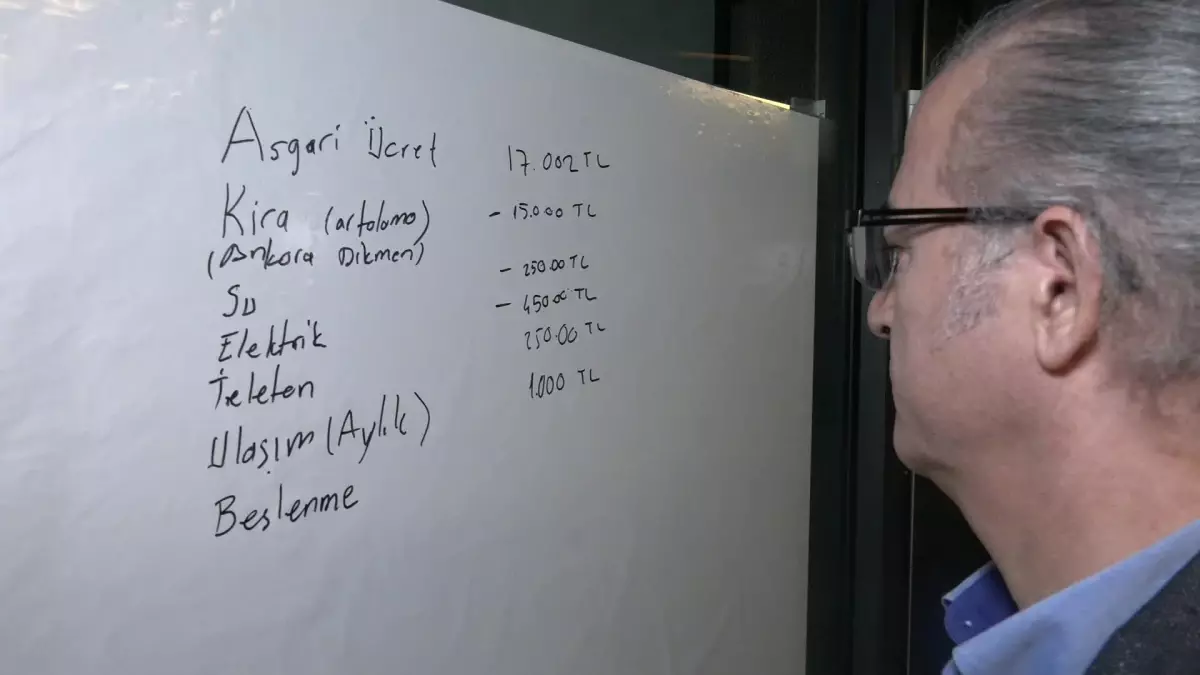 Asgari Ücret 17.002 TL
Kira (artolama) - 15.000 TL
(Ankara Dikmen)
Su - 250.00 TL
Elektrik - 450.00 TL
Telefon 250.00 TL
Ulaşım (Aylık) 1.000 TL
Beslenme